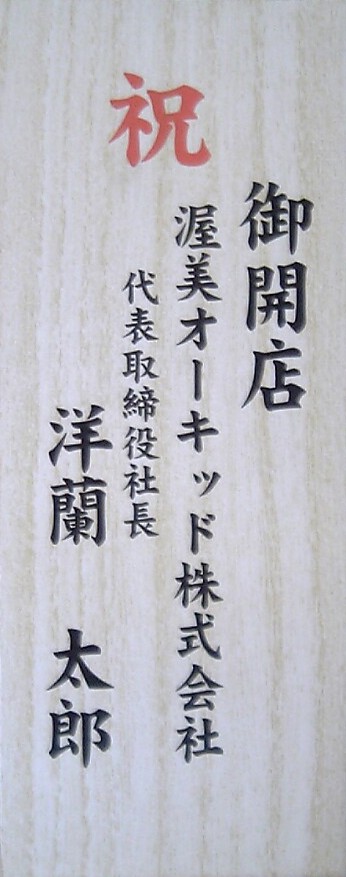 祝
御開店
渥美オーキッド株式会社
代表取締役社長
洋蘭 太郎